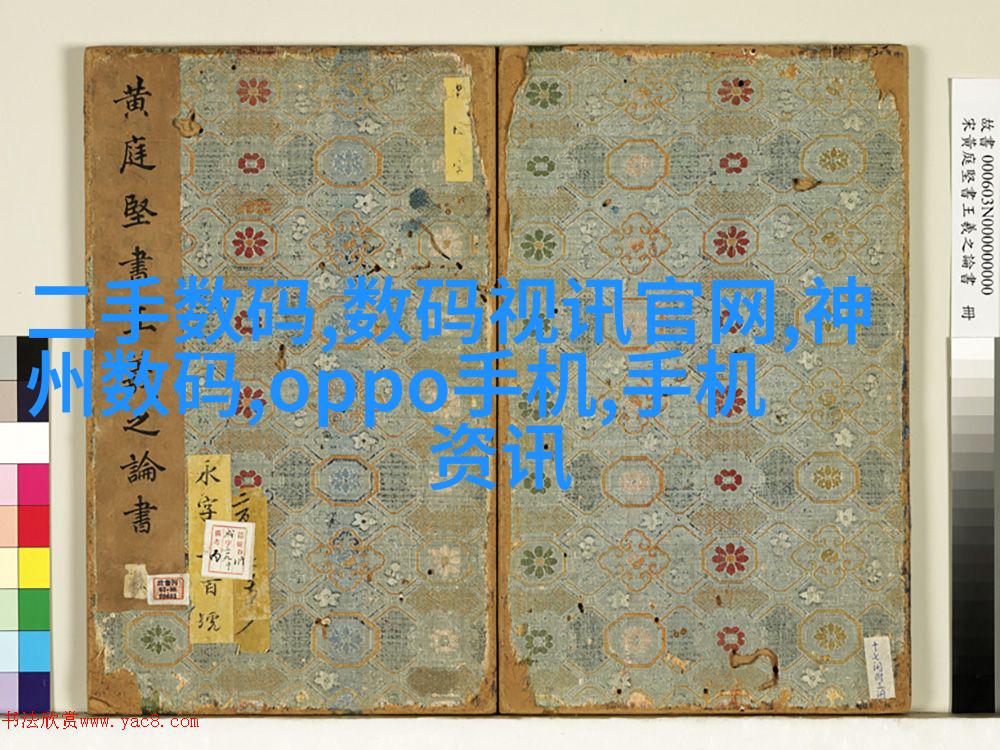 黄庭堅書王羲之論書
二手数码,数码视讯官网,神
州数码,oppo手机,手机
资讯
永字
百號
故書 000603N000000000
宋黄庭堅書王羲之論書 冊
书法欣赏www.yac8.com